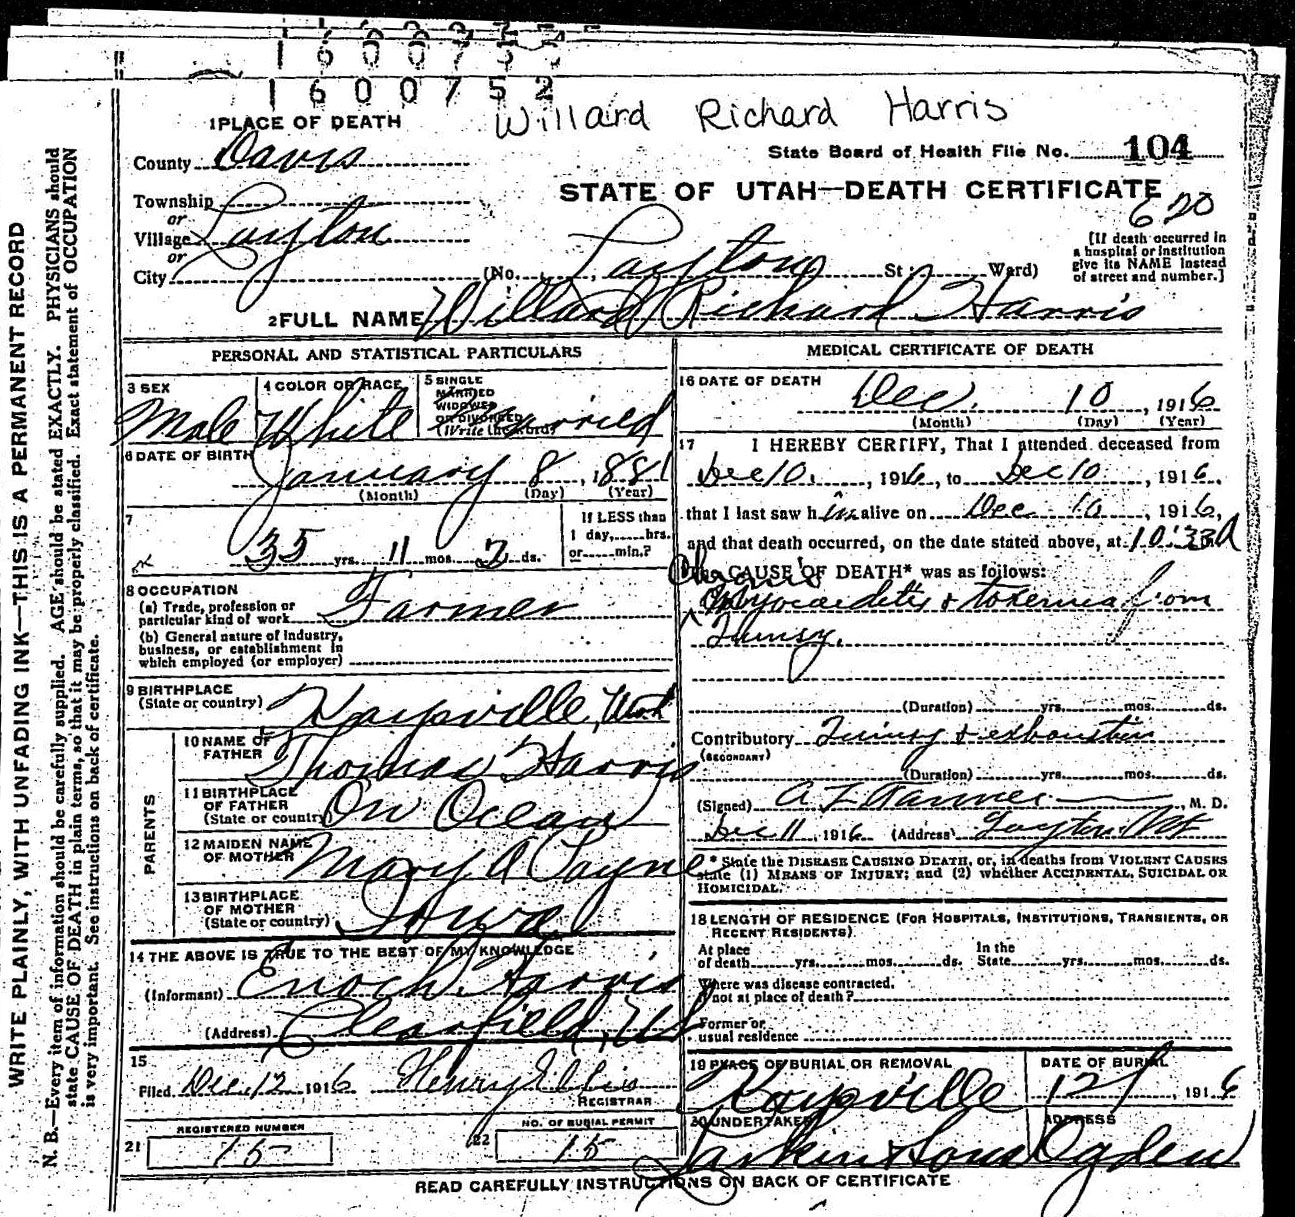 1600752
1600752
Willard Richard Harris
1 PLACE OF DEATH
County Davis
State Board of Health File No. 104
STATE OF UTAH—DEATH CERTIFICATE
620
Township
or
Village Layton
or
City (No. Layton St; Ward)
[If death occurred in
a hospital or institution
give its NAME instead
of street and number.]
2 FULL NAME Willard Richard Harris
PERSONAL AND STATISTICAL PARTICULARS
3 SEX Male
4 COLOR OR RACE White
5 SINGLE
MARRIED
WIDOWED
OR DIVORCED
(Write the word) Married
6 DATE OF BIRTH
January 8, 1881
(Month) (Day) (Year)
7
35 yrs. 11 mos. 2 ds.
If LESS than
1 day,.....hrs.
or.....min.?
8 OCCUPATION
(a) Trade, profession or
particular kind of work Farmer
(b) General nature of Industry,
business, or establishment in
which employed (or employer)
9 BIRTHPLACE
(State or country) Kaysville, Utah
PARENTS
10 NAME OF
FATHER Thomas Harris
11 BIRTHPLACE
OF FATHER
(State or country) On Ocean
12 MAIDEN NAME
OF MOTHER Mary A Payne
13 BIRTHPLACE
OF MOTHER
(State or country) Iowa
14 THE ABOVE IS TRUE TO THE BEST OF MY KNOWLEDGE
(Informant) Enoch Harris
(Address) Clearfield, Ut
15
Filed Dec. 12 1916 Henry Ellis
REGISTRAR
21 REGISTERED NUMBER
15
22 NO. OF BURIAL PERMIT
15
MEDICAL CERTIFICATE OF DEATH
16 DATE OF DEATH
Dec. 10, 1916
(Month) (Day) (Year)
17 I HEREBY CERTIFY, That I attended deceased from
Dec 10, 1916, to Dec 10, 1916,
that I last saw h im alive on Dec 10, 1916,
and that death occurred, on the date stated above, at
The CAUSE OF DEATH* was as follows:
Chronic
Myocarditis & toxemia from
Quinsy.
(Duration) yrs. mos. ds.
Contributory Quinsy & exhaustion
(SECONDARY)
(Duration) yrs. mos. ds.
(Signed) A Z Tanner, M. D.
Dec 11, 1916 (Address) Layton Ut
* State the DISEASE CAUSING DEATH, or, in deaths from VIOLENT CAUSES
state (1) MEANS OF INJURY; and (2) whether ACCIDENTAL, SUICIDAL OR
HOMICIDAL.
18 LENGTH OF RESIDENCE (FOR HOSPITALS, INSTITUTIONS, TRANSIENTS, OR
RECENT RESIDENTS).
At place
of death yrs. mos. ds.
In the
State yrs. mos. ds.
Where was disease contracted,
if not at place of death?
Former or
usual residence
19 PLACE OF BURIAL OR REMOVAL
Kaysville
DATE OF BURIAL
1916
20 UNDERTAKER
Larkin & Sons
ADDRESS
Ogden
READ CAREFULLY INSTRUCTIONS ON BACK OF CERTIFICATE
WRITE PLAINLY, WITH UNFADING INK—THIS IS A PERMANENT RECORD
N. B.—Every item of information should be carefully supplied. AGE should be stated EXACTLY. PHYSICIANS should
state CAUSE OF DEATH in plain terms, so that it may be properly classified. Exact statement of OCCUPATION
is very important. See instructions on back of certificate.